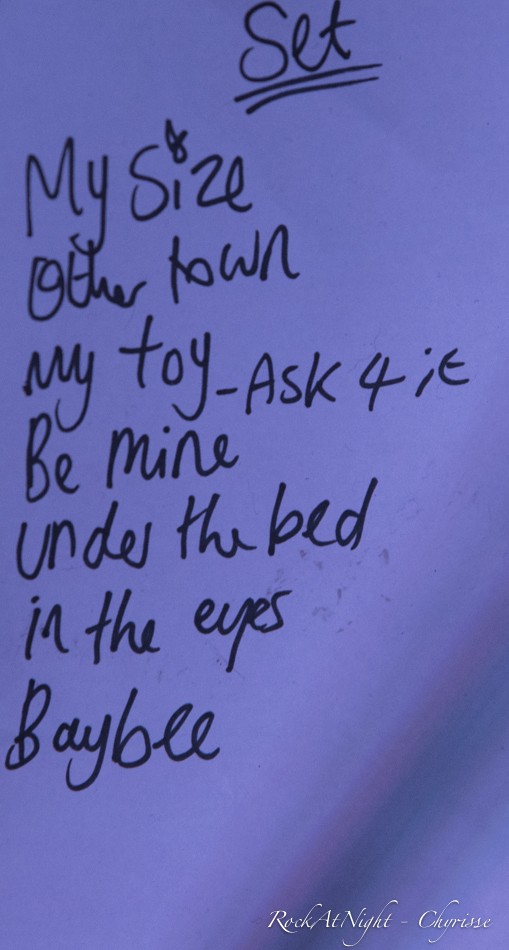 Set
My Size
Other town
my toy - Ask 4 it
Be mine
under the bed
in the eyes
Baybee
RockAtNight - Chyrisse